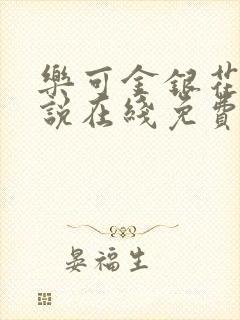 樂可金銀花
說在綫免費
晏福生